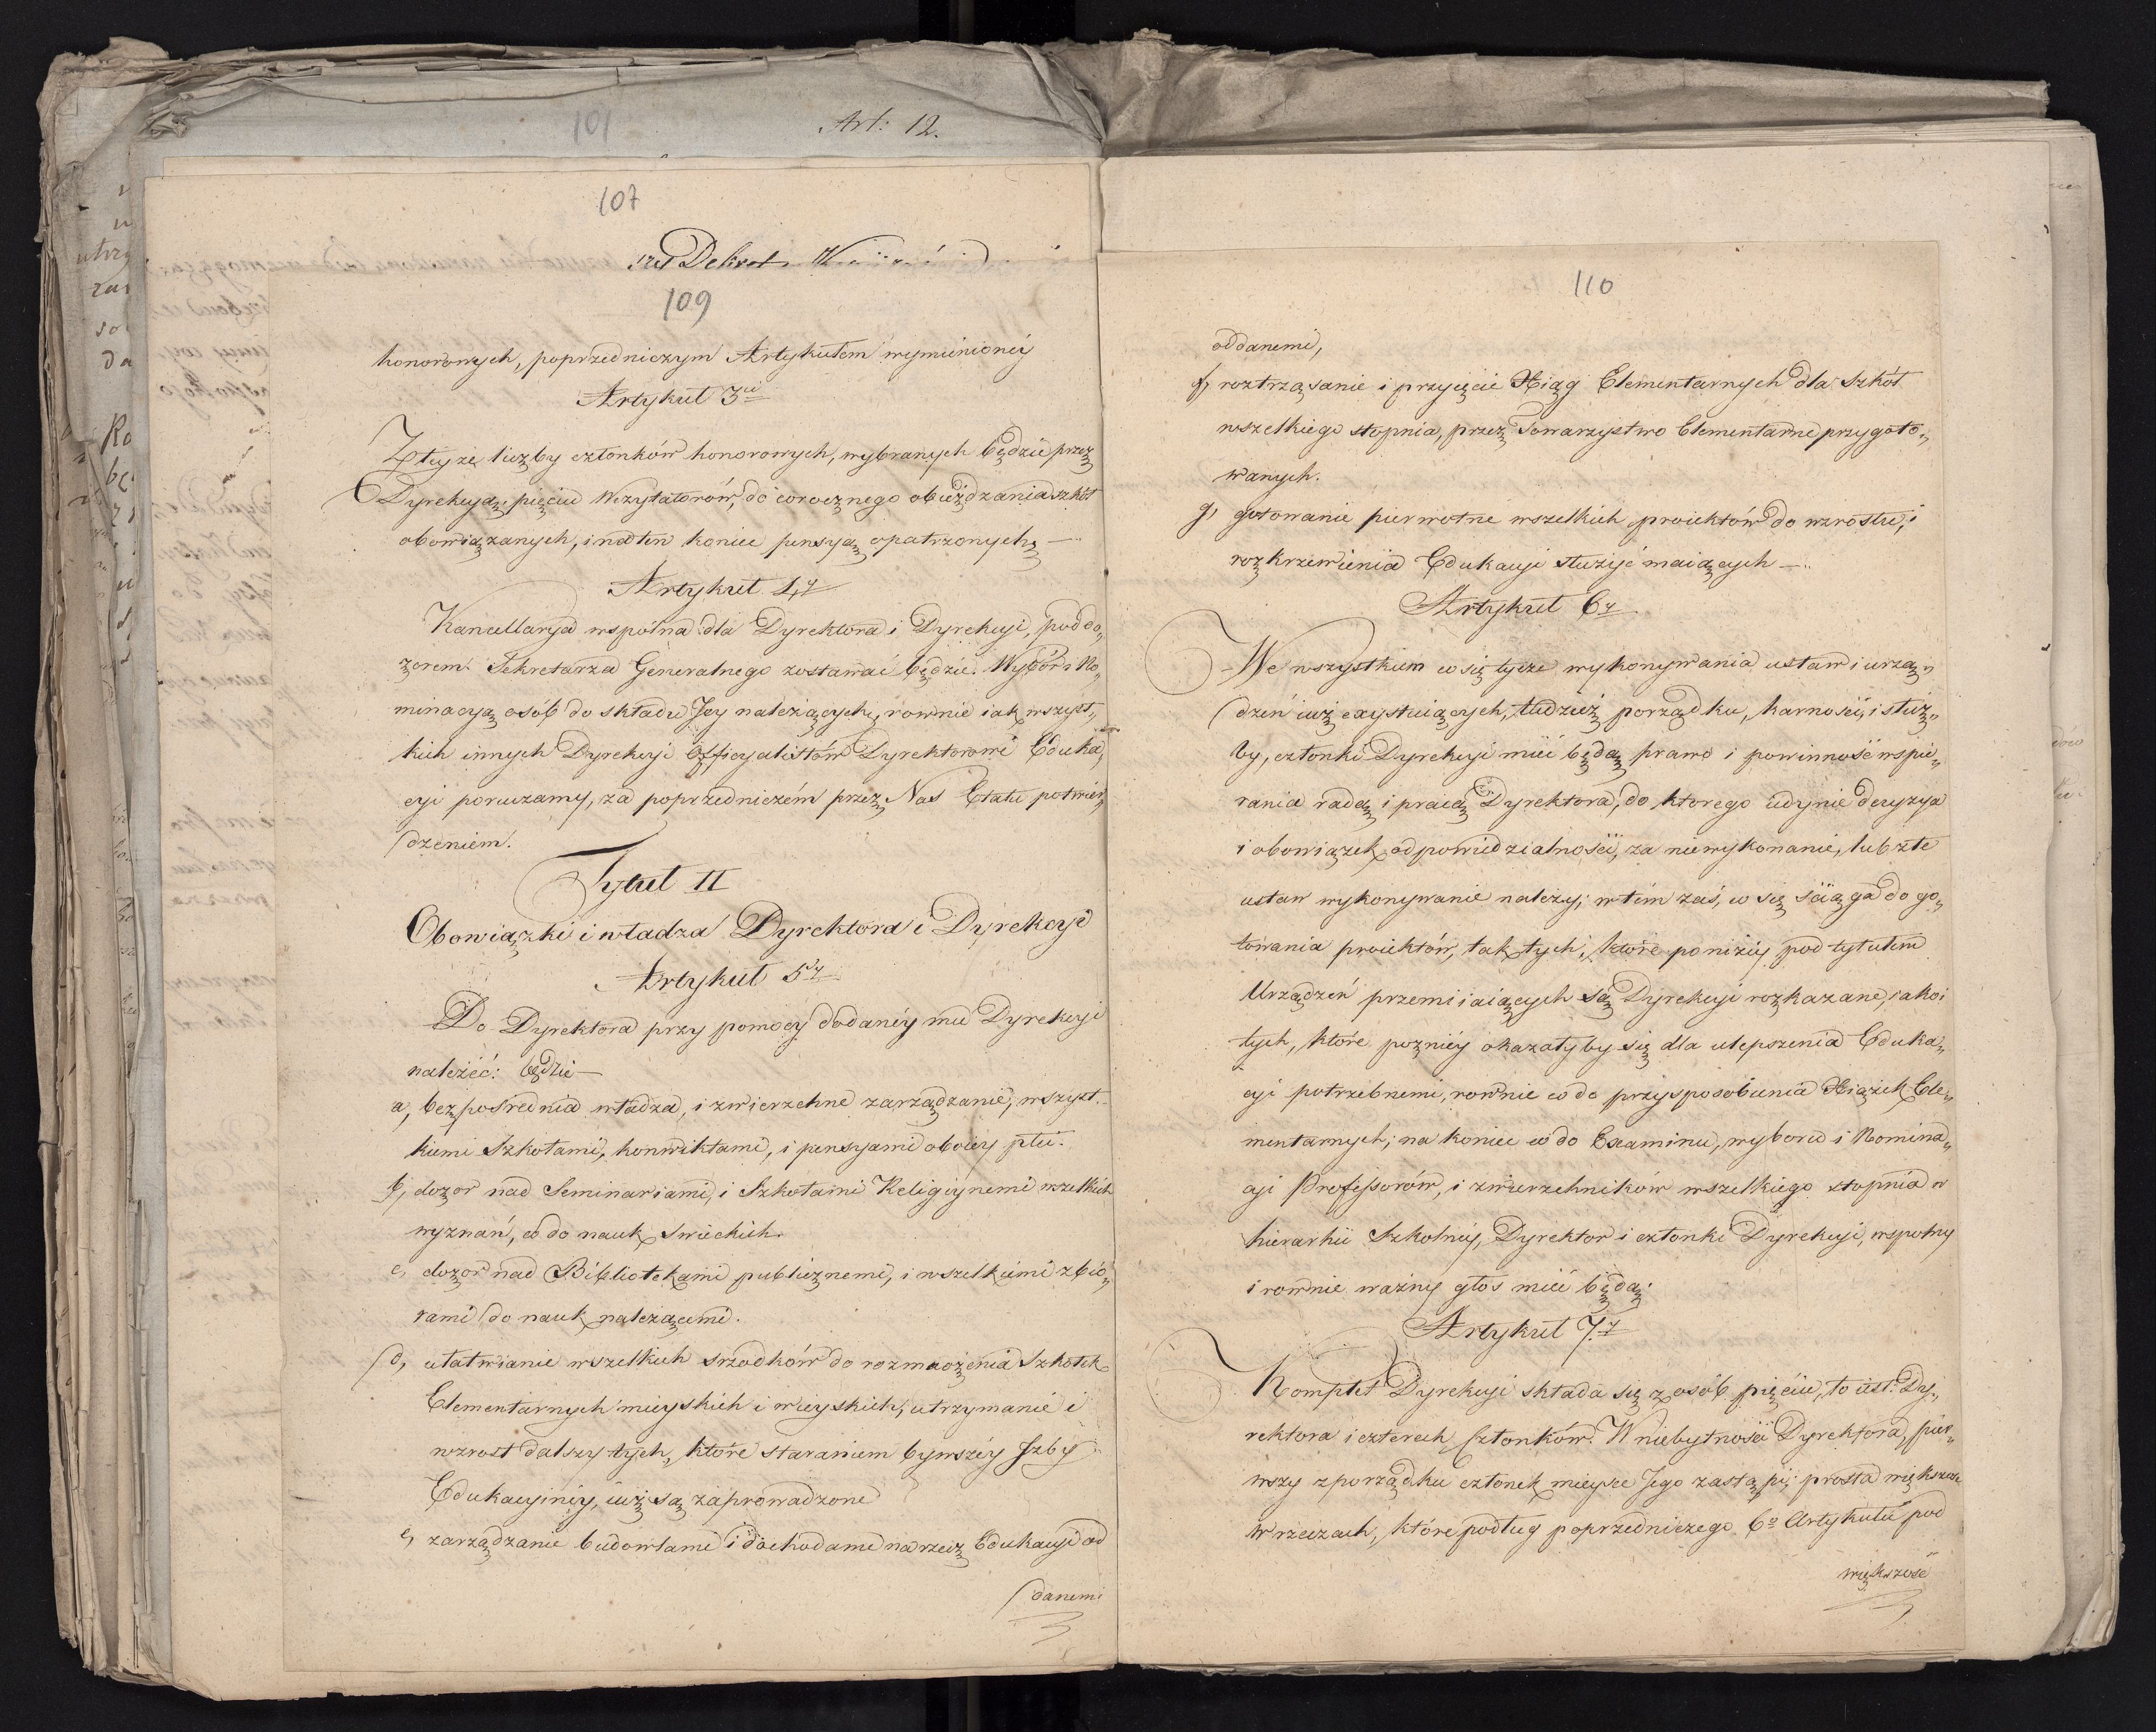 101
Art: 12.
107
Dekret
109
honorowych, poprzedniczym Artykułem wymienionéy
Artykuł 3ci
Z tey że liczby członków honorowych, wybranych będzie przez
Dyrekcyą pięciu Wizytatorów, do corocznego obieżdzania szkół
obowiązanych, i na ten koniec pensyą opatrzonych. —
Artykuł 4y
Kancellarya wspólna dla Dyrektora i Dyrekcyi, pod do„
zorem Sekretarza Generalnego zostawać będzie. Wybór i No„
minacyą osób do składu Jey należących, rownie iak wszyst„
kich innych Dyrekcyi Officyalistów Dyrektorowi Eduka„
cyi poruczamy, za poprzedniczém przez Nas Etatu potwier„
dzeniem.
Tytuł II
Obowiązki i władza Dyrektora i Dyrekcyi
Artykuł 5ty
Do Dyrektora przy pomocy dodanéy mu Dyrekcyi
należéć będzie —
a, bezpośrednia władza, i zwierzchne zarządzanie, wszyst„
kiemi Szkołami, konwiktami, i pensyami oboiey płci.
b, dozor nad Seminariami, i Szkołami Religiynemi wszelkich
wyznań, co do nauk swieckich.
c, dozor nad Bibliotekami publicznemi, i wszelkiemi zbio„
rami do nauk należącemi.
d, ułatwianie wszelkich srzodków do rozmnożenia Szkołek
Elementarnych mieyskich i wieyskich, utrzymanie i
wzrost dalszy tych, które staraniem bywszéy Jzby
Edukacyinéy, iuż są zaprowadzone
e, zarządzanie budowlami i dochodami na rzecz Edukacyi od
danemi
110
oddanemi,
f, roztrząsanie i przyięcie Xiąg Elementarnych dla Szkół
wszelkiego stopnia, przez Towarzystwo Elementarne przygoto„
wanych.
g, gotowanie pierwotne wszelkich proiektów do wzrostu, i
rozkrzewienia Edukacyi służyć maiących —
Artykuł 6y
We wszystkiem co się tycze wykonywania ustaw i urzą„
dzeń iuż exystuiących, tudzież porządku, karności, i służ„
by, członki Dyrekcyi mieć będą prawo i powinność wspie„
rania radą i pracą Dyrektora, do ktorego iedynie decyzya
i obowiązek odpowiedzialności, za niewykonanie, lub złe
ustaw wykonywanie należy; w tém zaś, co się sciąga do go„
towania proiektów, tak tych, które poniżéy pod tytułem
Urządzeń przemiiaiących są Dyrekcyi rozkazane, iako i
tych, które poznieý okazałyby się dla ulepszenia Eduka„
cyi potrzebnemi, rownie co do przysposobienia Xiążek Ele„
mentarnych; na koniec co do Examinu, wyboru i Nomina„
cyi Professorów, i zwierzchników wszelkiego stopnia w
hierarkii Szkolnéy, Dyrektor i członki Dyrekcyi, wspolny
i rownie ważny głos mieć będą.
Artykuł 7y
Komplet Dyrekcyi składa się z osób pięciu, to iest: Dy„
rektora i czterech Członków. W niebytności Dyrektora, pier„
wszy z porządku członek mieysce Jego zastąpi; prosta większość
w rzeczach, które podług poprzedniczego 6o Artykułu pod
większość